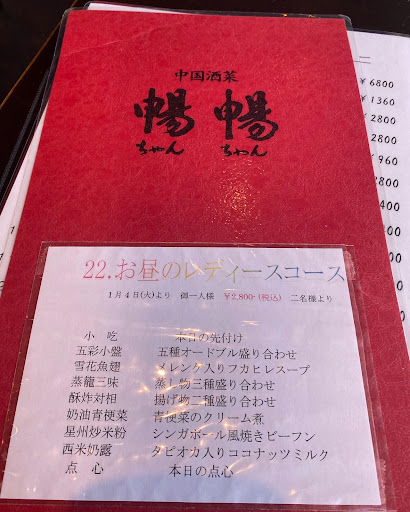 中国酒菜
暢暢
ちゃん ちゃん
22.お昼のレディースコース
1月4日(火)より 御一人様 ￥2,800-(税込) 二名様より
小吃 本日の先付け
五彩小盤 五種オードブル盛り合わせ
雪花魚翅 メレンゲ入りフカヒレスープ
蒸籠三味 蒸し物三種盛り合わせ
酥炸対相 揚げ物二種盛り合わせ
奶油青梗菜 青梗菜のクリーム煮
星州炒米粉 シンガポール風焼きビーフン
西米奶露 タピオカ入りココナッツミルク
点心 本日の点心
￥6800
￥1360
2800
￥960